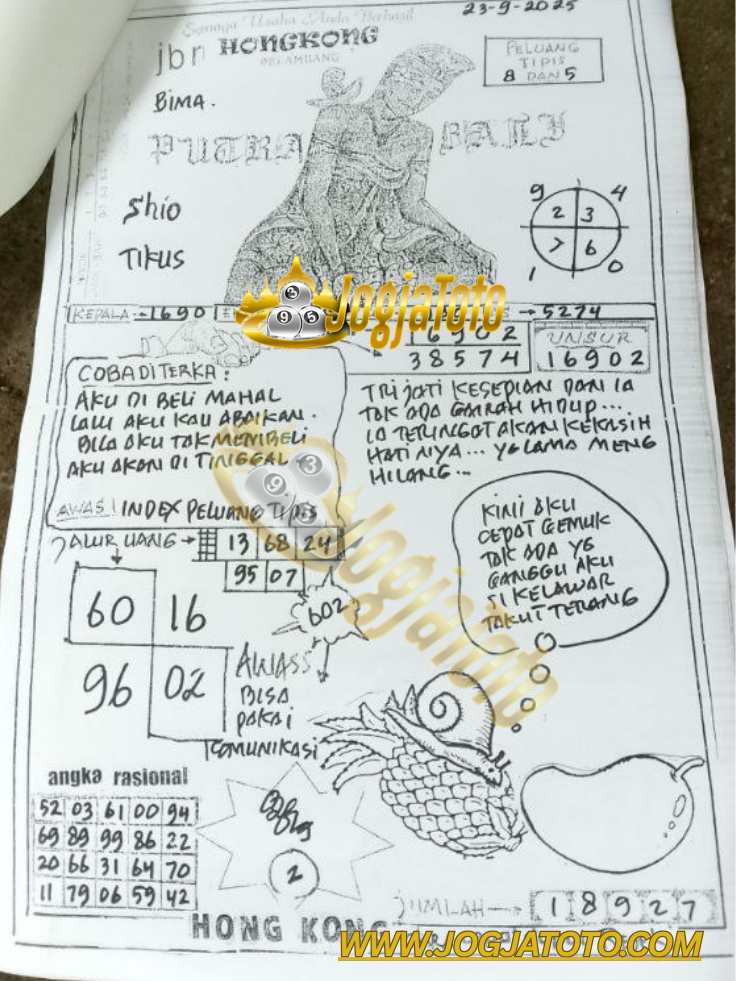 Semoga Usaha Anda Berhasil
23-9-2025
jbr HONGKONG
PELAMBANG
PELUANG
TIPIS
8 DAN 5
BIMA.
PUTRA BALI
Shio
TIKUS
9 4
2 3
7 6
1 0
KEPALA → 1690 → 5274
JogjaToto
3 9 5
16902
38574
UNSUR
16902
COBA DI TERKA:
AKU DI BELI MAHAL
LALU AKU KAU ABAIKAN.
BILA AKU TAK MEMBELI
AKU AKAN DI TINGGAL
AWAS! INDEX PELUANG TIPIS
TRI JATI KESEPIAN DAN IA
TAK ADA GAIRAH HIDUP...
IA TERINGAT AKAN KEKASIH
HATI NYA... YG LAMA MENG
HILANG...
KINI AKU
CEPAT GEMUK
TAK ADA YG
GANGGU AKU
SI KELAWAR
TAKUT TERANG
JALUR UANG → 13 68 24
95 07
60 16
96 02
602
JogjaToto
3 9 5
AWASS
BISA
PAKAI
KOMUNIKASI
angka rasional
52 03 61 00 94
69 89 99 86 22
20 66 31 64 70
11 79 06 59 42
2
JUMLAH → 1 8 9 2 7
HONG KONG
WWW.JOGJATOTO.COM